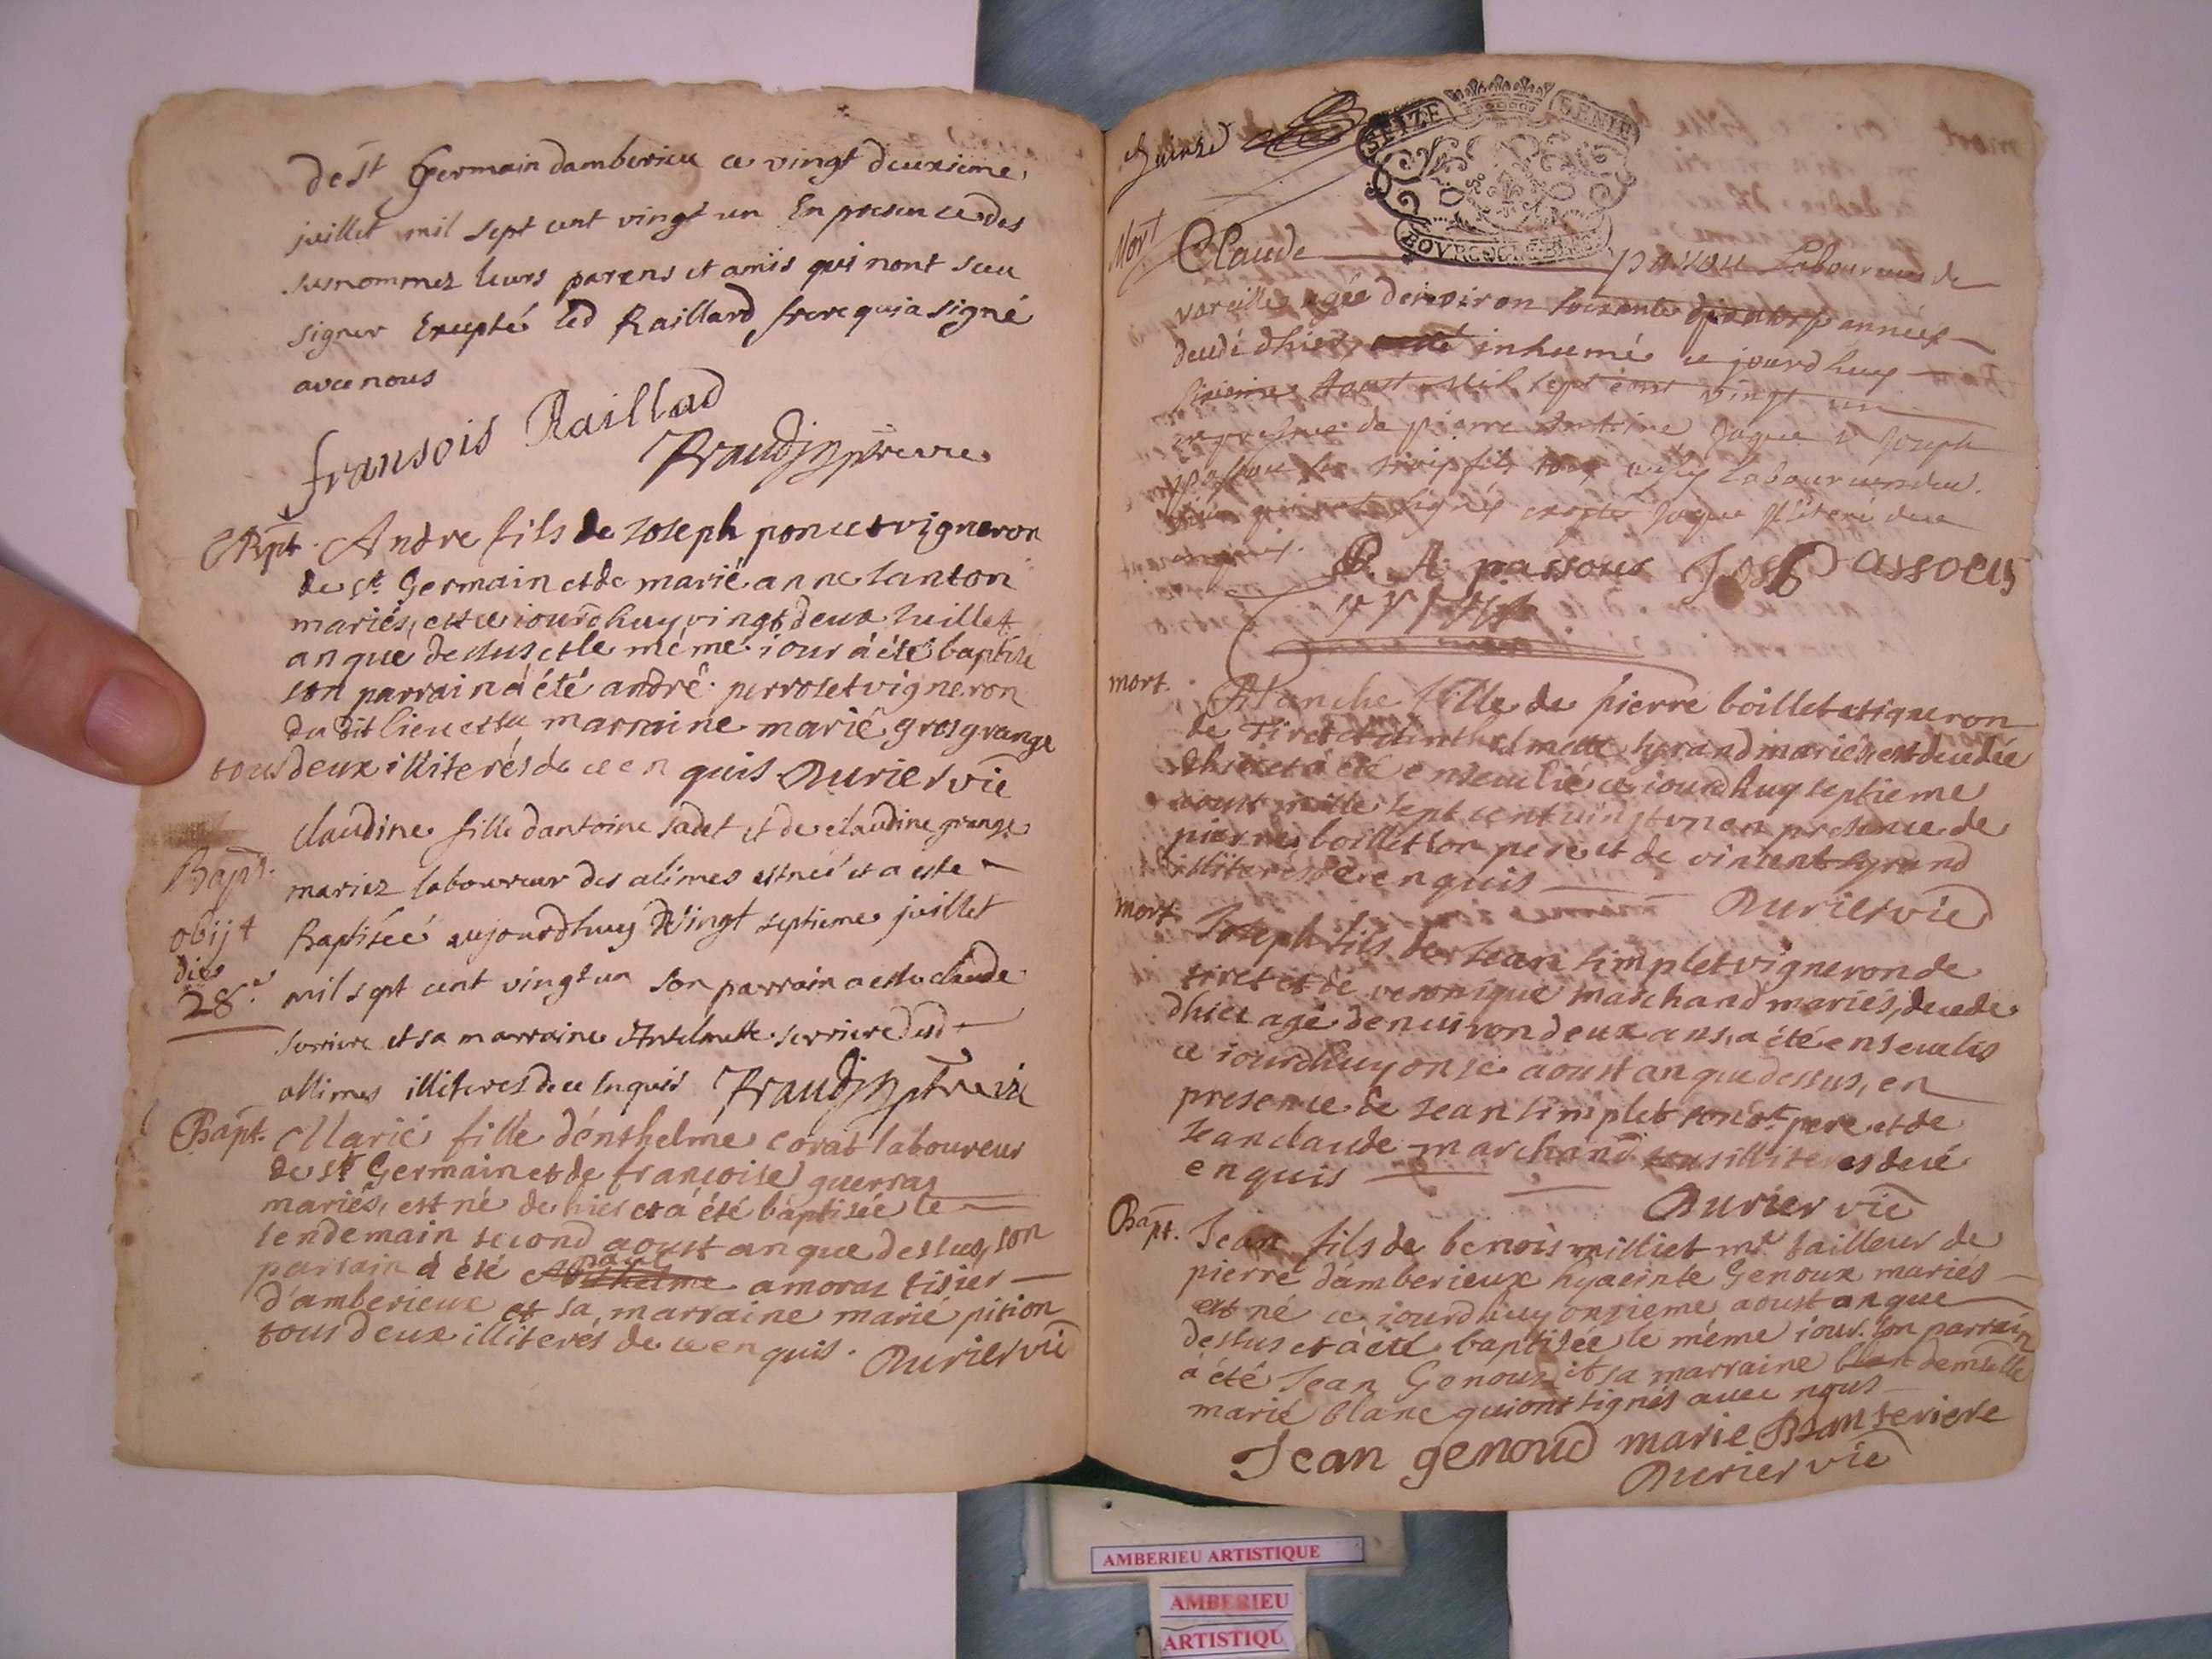 de st Germain damberieu ce vingt deuxieme
juillet mil sept cent vingt un En presence des
susnommez leurs parens et amis qui nont sceu
signer Excepté led Raillard frere qui a signé
avec nous
fransois Raillad
Baudin ptre vic
Bapt. Andre fils de Joseph poncet vigneron
de st Germain et de marié anne tanton
mariés, est ce iourdhuy vingt deux Juillet
an que dessus et le méme iour à été baptise
son parrain à été andré perroset vigneron
du dit lieu et sa marraine marié gros grange
tous deux illiterés de ce en quis Aurier vic
claudine fille dantoine sadet et de claudine grange
Bapt. mariez laboureur des alimes est née et a este
obijt Baptisée aujourdhuy Vingt septieme juillet
die
28e mil sept cent vingt un son parrain a este claude
serriere et sa marraine Antelmette serriere dud
allimes illiteres de ce Enquis Baudin ptre vic
Bapt. Marie fille dénthelme corat laboureur
de st Germain et de françoise guerras
mariés, est né de hier et à été baptisée le
lendemain second aoust an que dessus, son
parrain à été amoraz tisier
d'amberieux et sa marraine marié pition
tous deux illiteres de ce en quis. Aurier vic
SEIZE DENIE
BOURGOGNE BRESSE
Mort Claude passou Laboureur de
vareille agée denviron soixante années
decedé dhier inhumé ce jourdhuy
sixieme Aoust Mil sept cent vingt un
en presence de pierre Antoine Jaque & Joseph
passou ses trois fils
qui ont signés excepté Jaque illiteré de ce
enquis.
P. A passour Jos Passous
mort. Blanche fille de pierre boillet vigneron
de Tiret et danthelmette hyrand mariés, est decedée
dhier et à été ensevelié ce iourdhuy septieme
aoust mille sept cent vingt un en presence de
pierre boillet son pere et de vincent hyrand
illiterés de ce enquis Aurier vic
mort. Joseph fils de Jean simplet vigneron de
tiret et de veronique marchand mariés, decede
dhier agé denuiron deux ans, a été ensevelis
ce iourdhuy onse aoust an que dessus, en
presence de Jean simplet son dt pere et de
Jean claude marchand tous illiteres de cé
enquis
Aurier vic
Bapt. Jean fils de benois milliet mt tailleur de
pierre d'amberieux hyacinte Genoux mariés
est né ce iourdhuy onzieme aoust an que
dessus et à été baptisée le méme iour. son parrain
à été Jean Genoux et sa marraine demselle
marié blanc qui ont signés avec nous
Jean genoud marie
Aurier vic
AMBERIEU ARTISTIQUE
AMBERIEU
ARTISTIQU